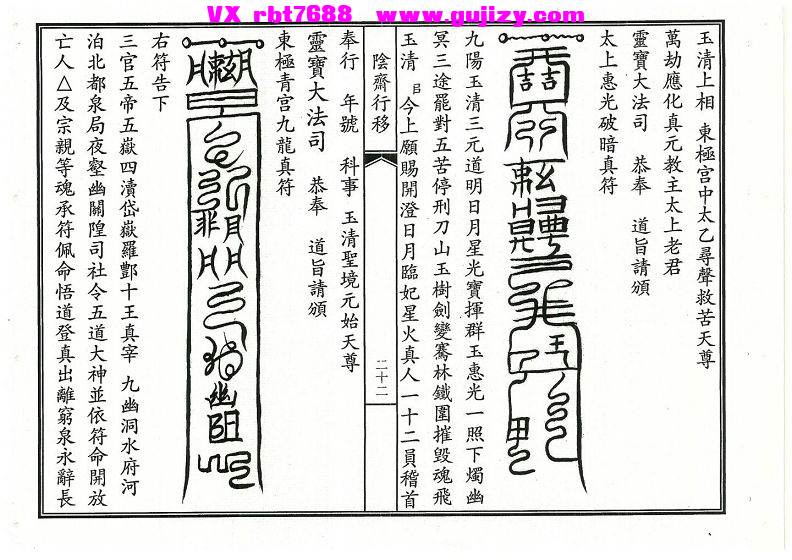 VX rbt7688 www.gujizy.com
玉清上相　東極宮中太乙尋聲救苦天尊
萬劫應化真元教主太上老君
靈寶大法司　恭奉　道旨請頒
太上惠光破暗真符
九陽玉清三元道明日月星光寶揮群玉惠光一照下燭幽
冥三途罷對五苦停刑刀山玉樹劍變騫林鐵圍摧毀魂飛
玉清　今上願賜開澄日月臨妃星火真人一十二員稽首
陰齋行移
二十二
奉行　年號　科事　玉清聖境元始天尊
靈寶大法司　恭奉　道旨請頒
東極青宮九龍真符
右符告下
三官五帝五嶽四瀆岱嶽羅酆十王真宰　九幽洞水府河
泊北都泉局夜壑幽關隍司社令五道大神並依符命開放
亡人△及宗親等魂承符佩命悟道登真出離窮泉永辭長